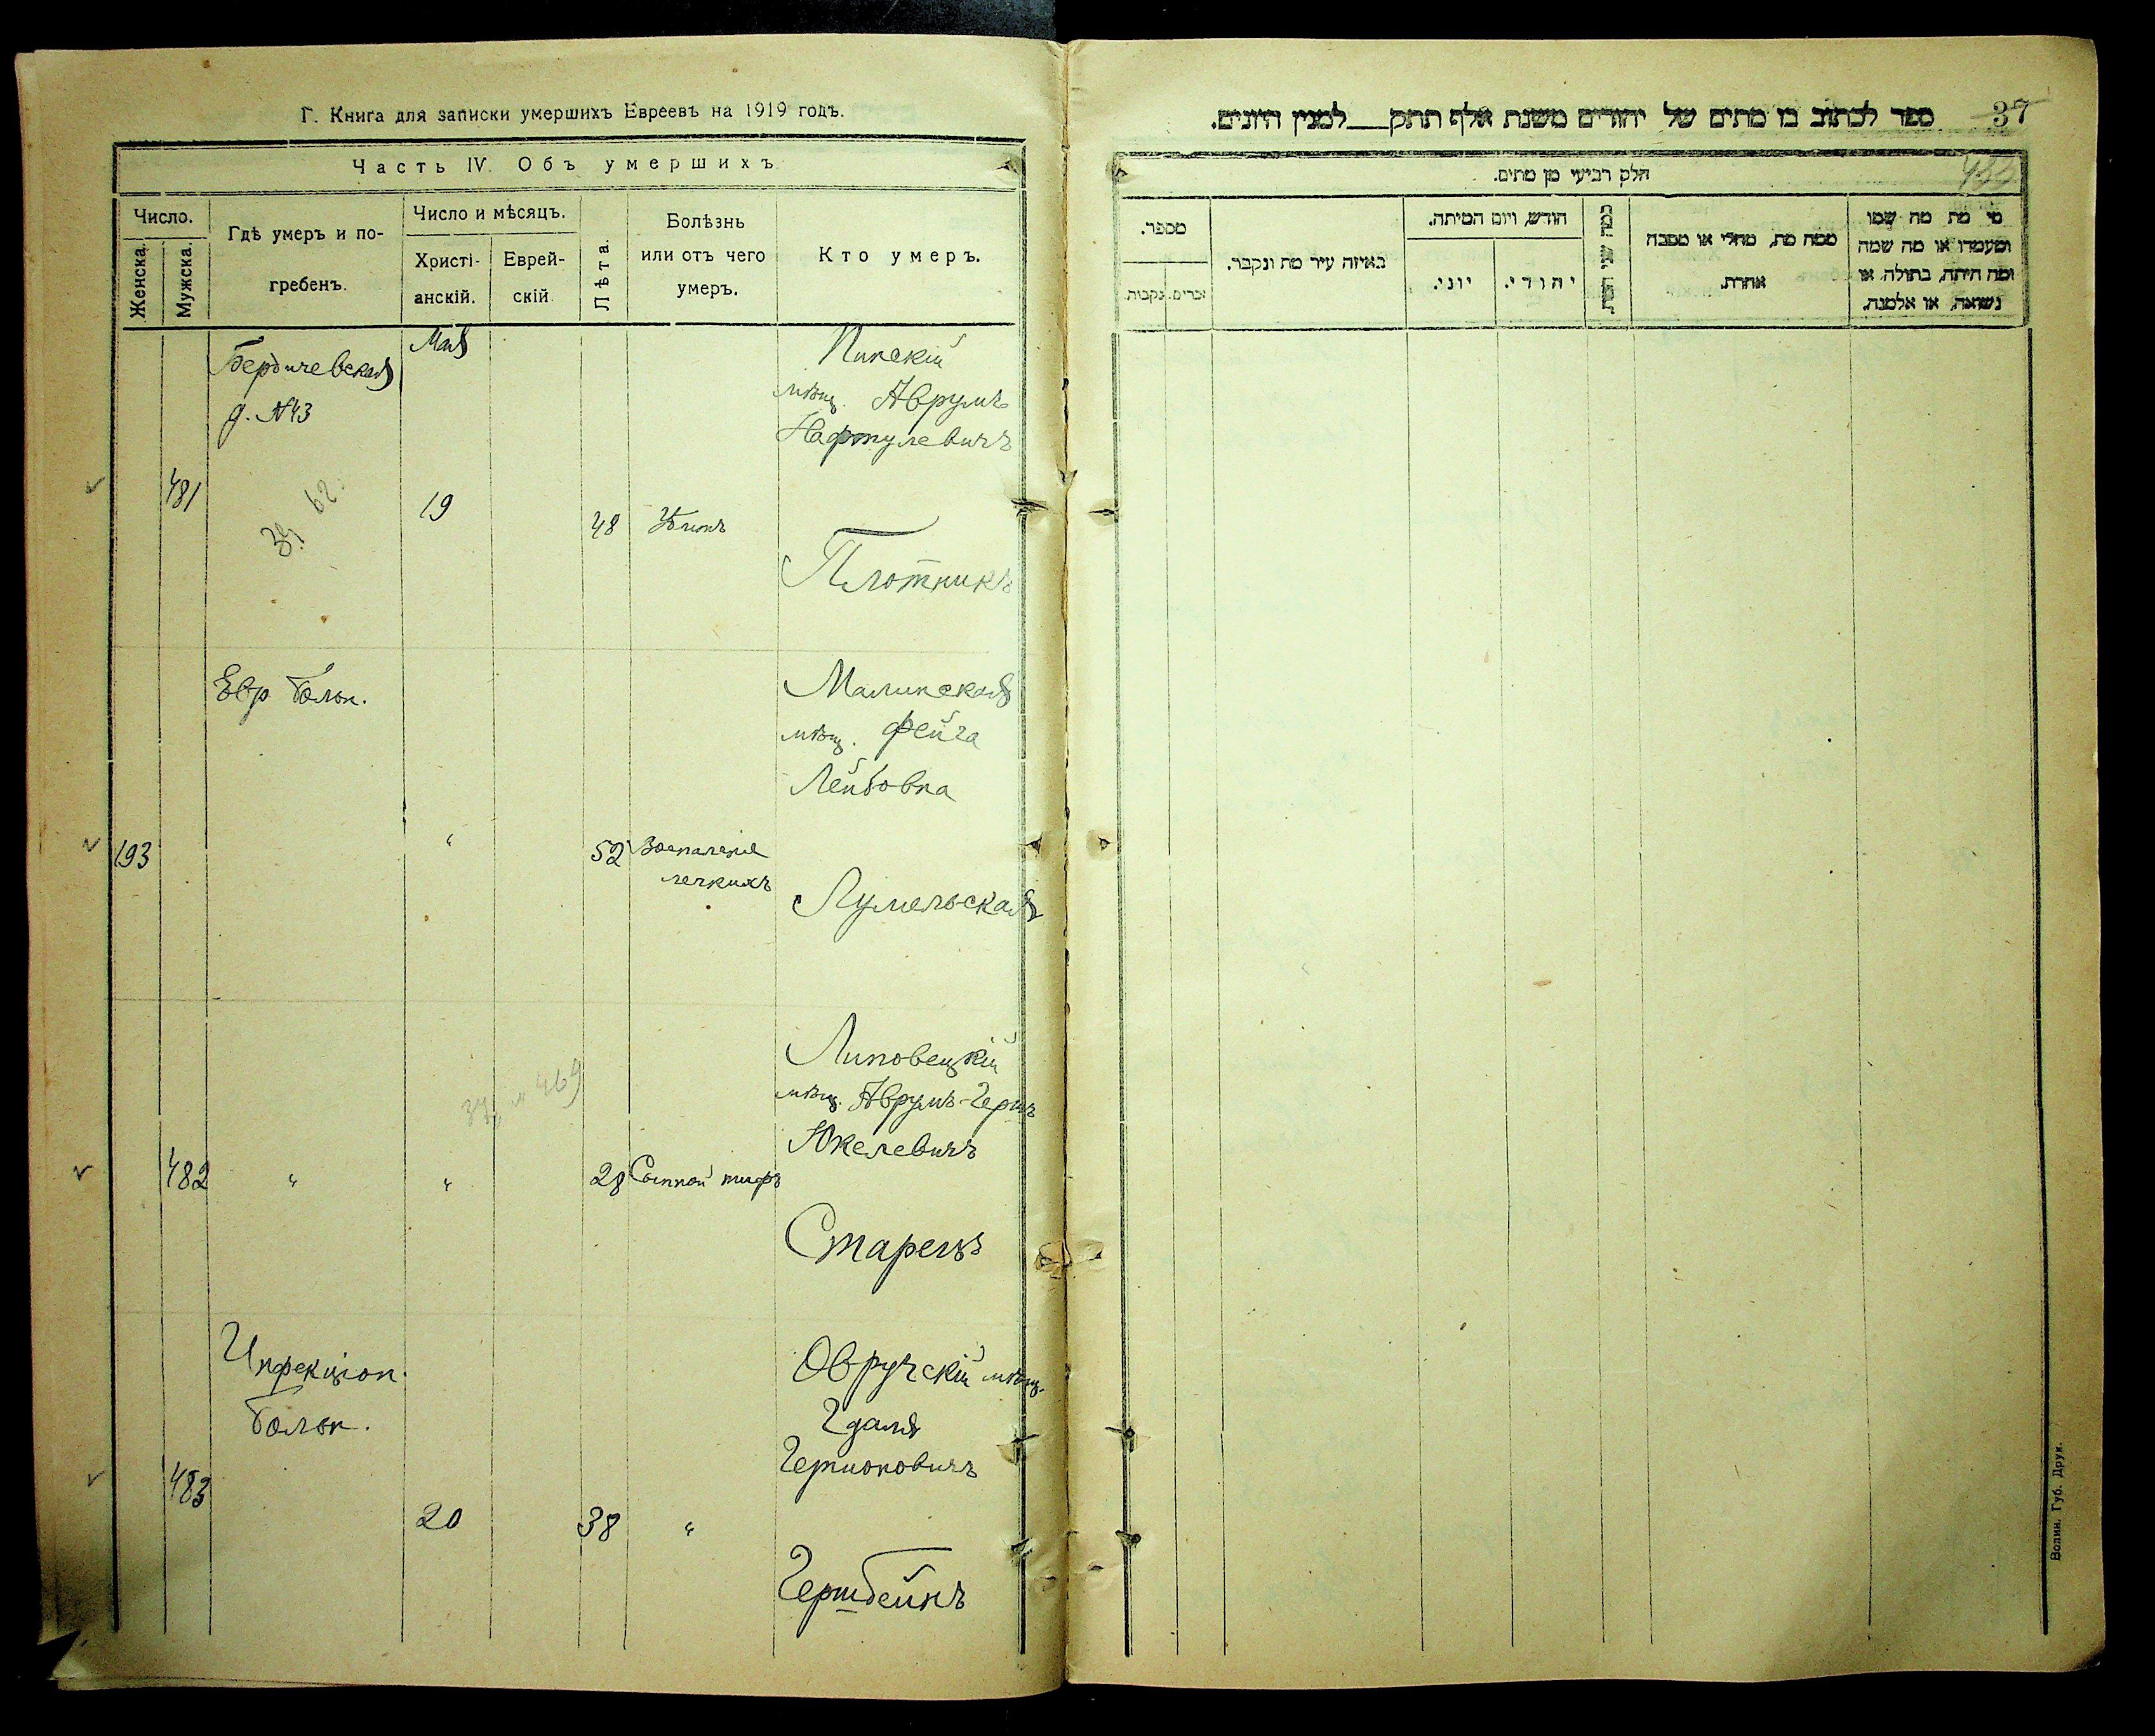 Г. Книга для записки умершихъ Евреевъ на 1919 годъ.
Часть IV. Объ умершихъ
Число.
Женска.
Мужска.
Гдѣ умеръ и по-
гребенъ.
Число и мѣсяцъ.
Христі-
анскій.
Еврей-
скій
Лѣта.
Болѣзнь
или отъ чего
умеръ.
Кто умеръ.
Бердичевская
д. №43
481
Мая
19
48
Пинскій
мѣщ. Аврумъ
Нафтулевичъ
Плотникъ
Евр Больн.
193
"
52
Воспаленіе
легкихъ
Малинская
мѣщ. Фейга
Лейбовна
Лумельская
482
"
"
28
Сыпной тифъ
Липовецкій
мѣщ. Аврумъ-Гершъ
Юкелевичъ
Старецъ
469
Инфекціон.
Больн.
483
20
38
"
Овручскій мѣщ.
Гдаля
Гершоновичъ
Герштейнъ
37
ספר לכתוב בו מתים של יהודים משנת אלף תתק למנין היונים.
433
חלק רביעי מן מתים.
מי מת מה שמו
ומעמדו או מה שמה
ומה היתה, בתולה, או
נשואה, או אלמנה.
ממה מת, מחלי או מסבה
אחרת.
כמה שני
חודש, ויום המיתה.
יהודי.
יוני.
באיזה עיר מת ונקבר.
מספר.
זכרים.
נקבות.
Волин. Губ. Друк.